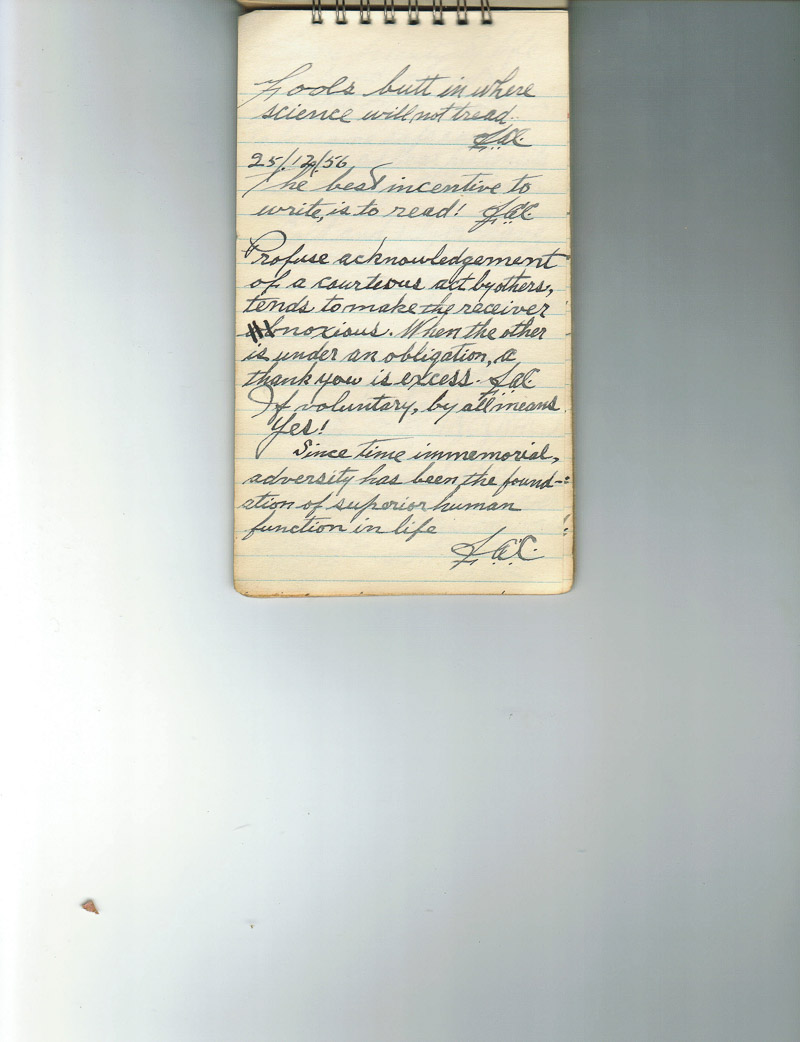 Fools butt in where
science will not tread.
25/12/56
The best incentive to
write, is to read!
Profuse acknowledgement
of a courteous act by others,
tends to make the receiver
obnoxious. When the other
is under an obligation, a
thank you is excess.
If voluntary, by all means
Yes!
Since time immemorial,
adversity has been the found-
ation of superior human
function in life